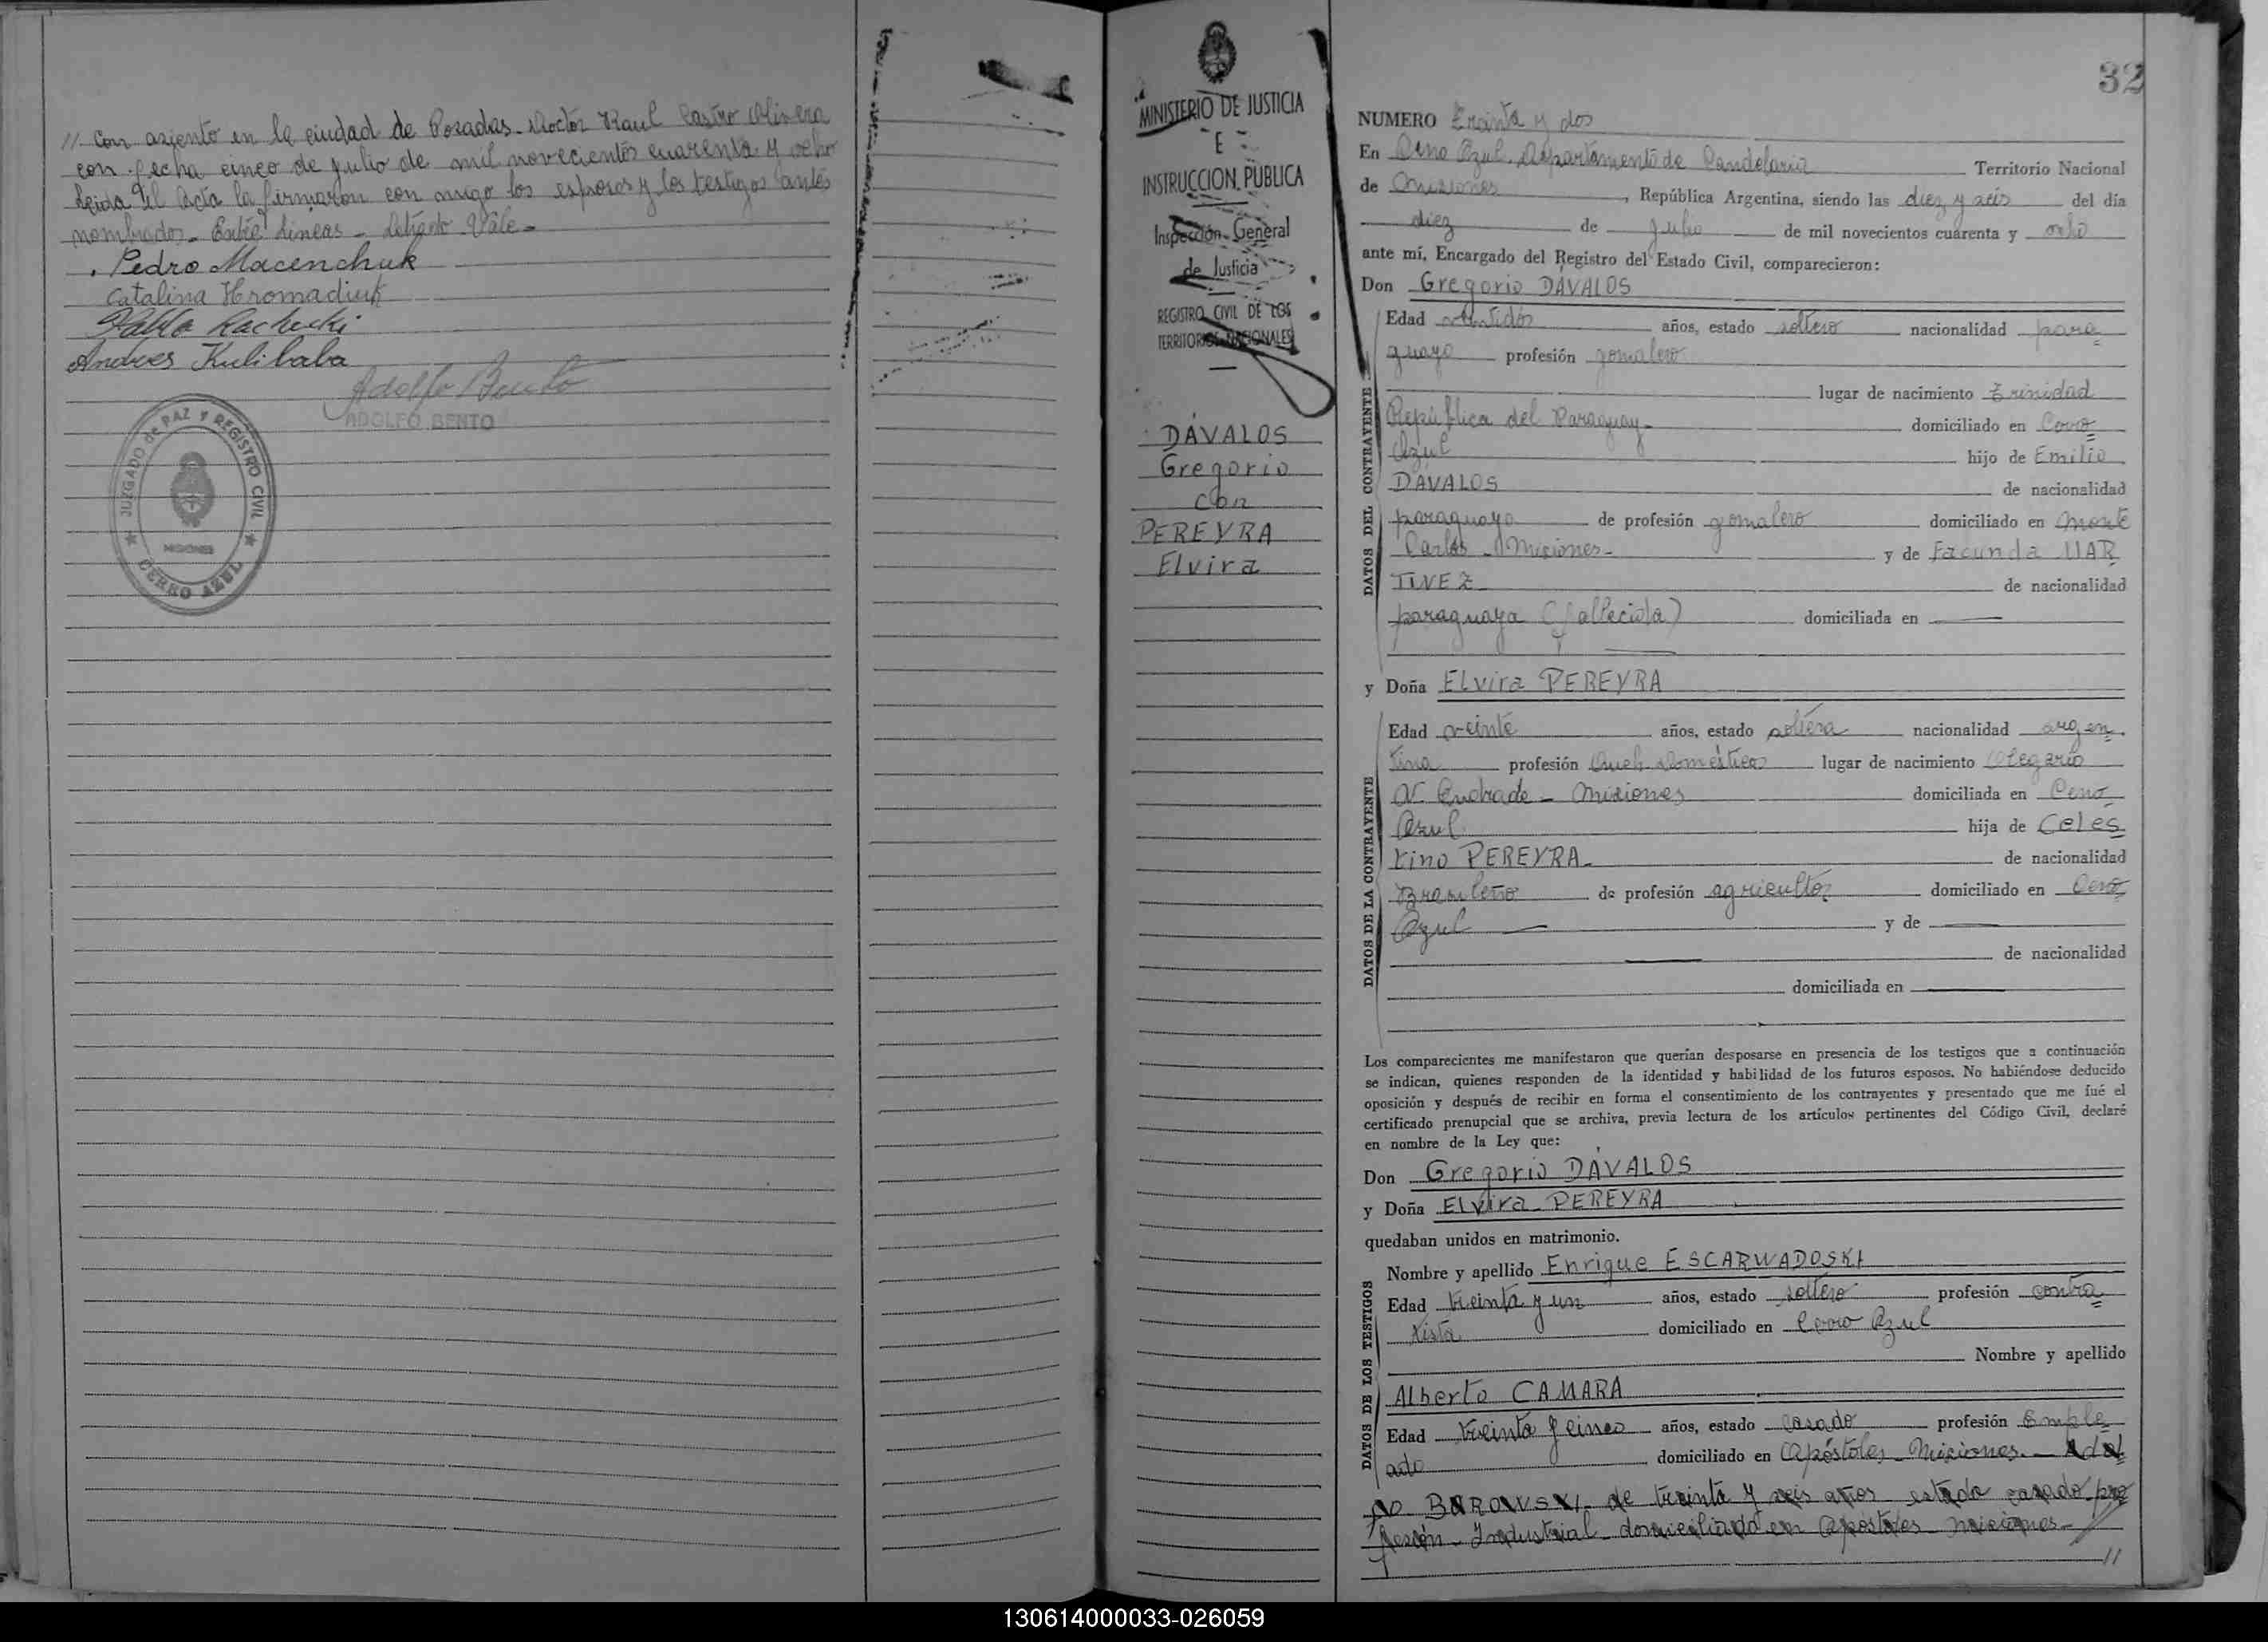 // Con asiento en la ciudad de Posadas. Doctor Raul Castro Olivera
con fecha cinco de julio de mil novecientos cuarenta y ocho
Leida el Acta la firmaron con migo los esposos y los testigos antes
nombrados - Entre Lineas - Letrado Vale -
Pedro Macenchuk
Catalina Hromadiuk
Pablo Rachecki
Andres Kulibaba
Adolfo Bento
ADOLFO BENTO
JUZGADO de PAZ Y REGISTRO CIVIL
MISIONES
CERRO AZUL
MINISTERIO DE JUSTICIA
E
INSTRUCCION PUBLICA
Inspección General
de Justicia
REGISTRO CIVIL DE LOS
TERRITORIOS NACIONALES
DÁVALOS
Gregorio
con
PEREYRA
Elvira
32
NUMERO Treinta y dos
En Cerro Azul. Departamento de Candelaria Territorio Nacional
de Misiones, República Argentina, siendo las diez y seis del día
diez de Julio de mil novecientos cuarenta y ocho
ante mí, Encargado del Registro del Estado Civil, comparecieron:
Don Gregorio DÁVALOS
DATOS DEL CONTRAYENTE
Edad veintidós años, estado soltero nacionalidad para=
guayo profesión gomalero
lugar de nacimiento Trinidad
República del Paraguay - domiciliado en Cerro
Azul hijo de Emilio
DÁVALOS de nacionalidad
paraguayo de profesión gomalero domiciliado en Monte
Carlos - Misiones - y de Facunda MAR
TINEZ de nacionalidad
paraguaya (fallecida) domiciliada en
y Doña Elvira PEREYRA
DATOS DE LA CONTRAYENTE
Edad veinte años, estado soltera nacionalidad argen=
tina profesión Queh. Domésticos lugar de nacimiento Olegario
V. Andrade - Misiones domiciliada en Cerro
Azul hija de Celes=
tino PEREYRA - de nacionalidad
Brasileño de profesión agricultor domiciliado en Cerro
Azul — y de —
de nacionalidad
domiciliada en
Los comparecientes me manifestaron que querían desposarse en presencia de los testigos que a continuación
se indican, quienes responden de la identidad y habilidad de los futuros esposos. No habiéndose deducido
oposición y después de recibir en forma el consentimiento de los contrayentes y presentado que me fué el
certificado prenupcial que se archiva, previa lectura de los artículos pertinentes del Código Civil, declaré
en nombre de la Ley que:
Don Gregorio DÁVALOS
y Doña Elvira PEREYRA
quedaban unidos en matrimonio.
DATOS DE LOS TESTIGOS
Nombre y apellido Enrique ESCARWADOSKI
Edad treinta y un años, estado soltero profesión contra=
tista domiciliado en Cerro Azul
Nombre y apellido
Alberto CAMARA
Edad treinta y cinco años, estado casado profesión Emple=
ado domiciliado en Apóstoles - Misiones. -
BUROWSKI de treinta y seis años estado casado pro
fesión - Industrial domiciliado en Apostoles Misiones - //
//
130614000033-026059